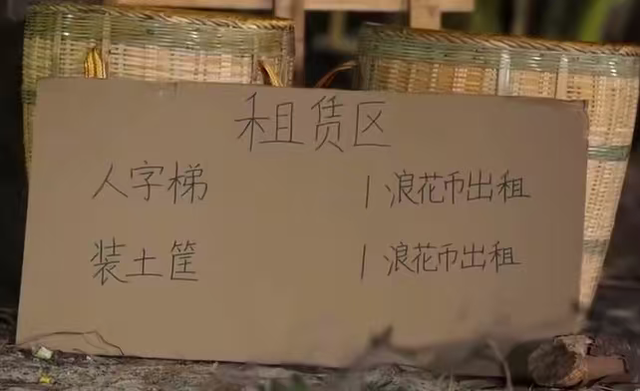 租赁区
人字梯 1浪花币出租
装土筐 1浪花币出租